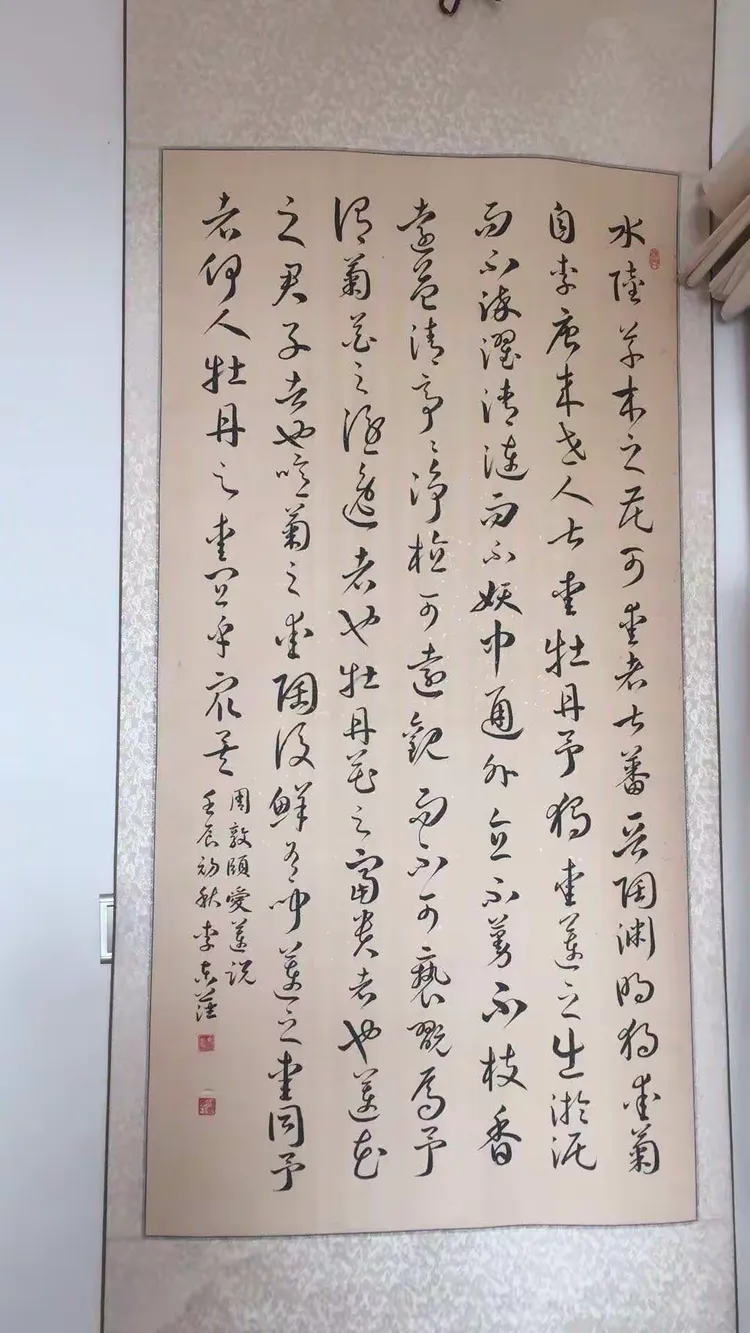 水陸草木之花可愛者甚蕃晉陶淵明獨愛菊
自李唐来世人甚愛牡丹予獨愛蓮之出淤泥
而不染濯清漣而不妖中通外直不蔓不枝香
遠益清亭々淨植可遠觀而不可褻翫焉予
謂菊花之隱逸者也牡丹花之富貴者也蓮花
之君子者也噫菊之愛陶後鮮有聞蓮之愛同予
者何人牡丹之愛宜乎衆矣
周敦頤愛蓮說
壬辰初秋李